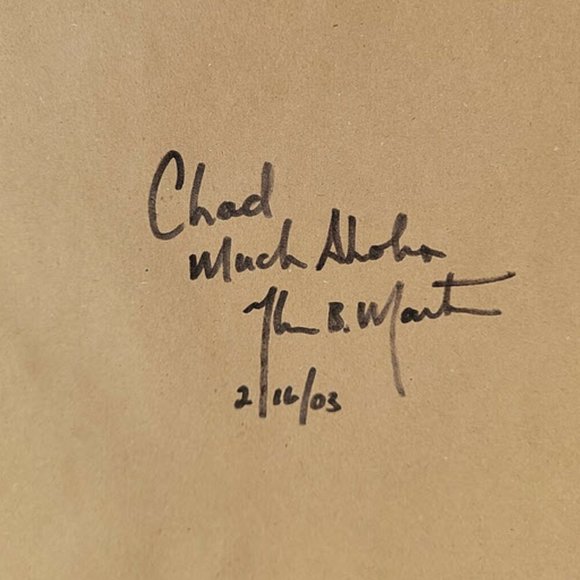 Chad
Much Aloha
B. Martin
2/16/03